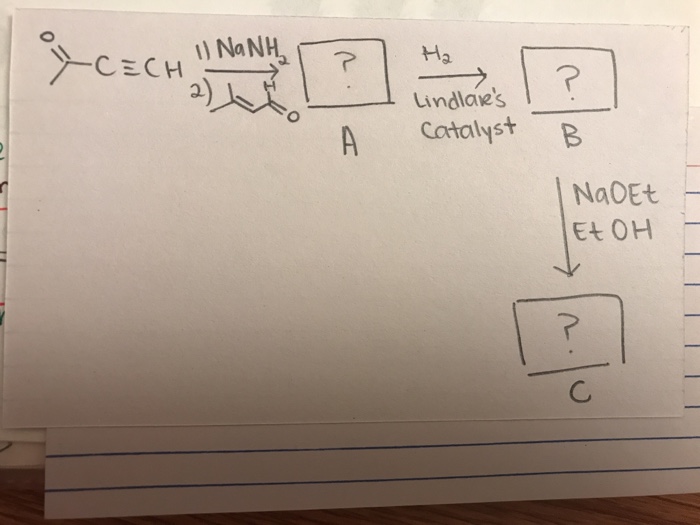 O
C≡CH 1) NaNH₂ ? H₂ ?
2) H O Lindlar's
Catalyst
A B
NaOEt
EtOH
?
C